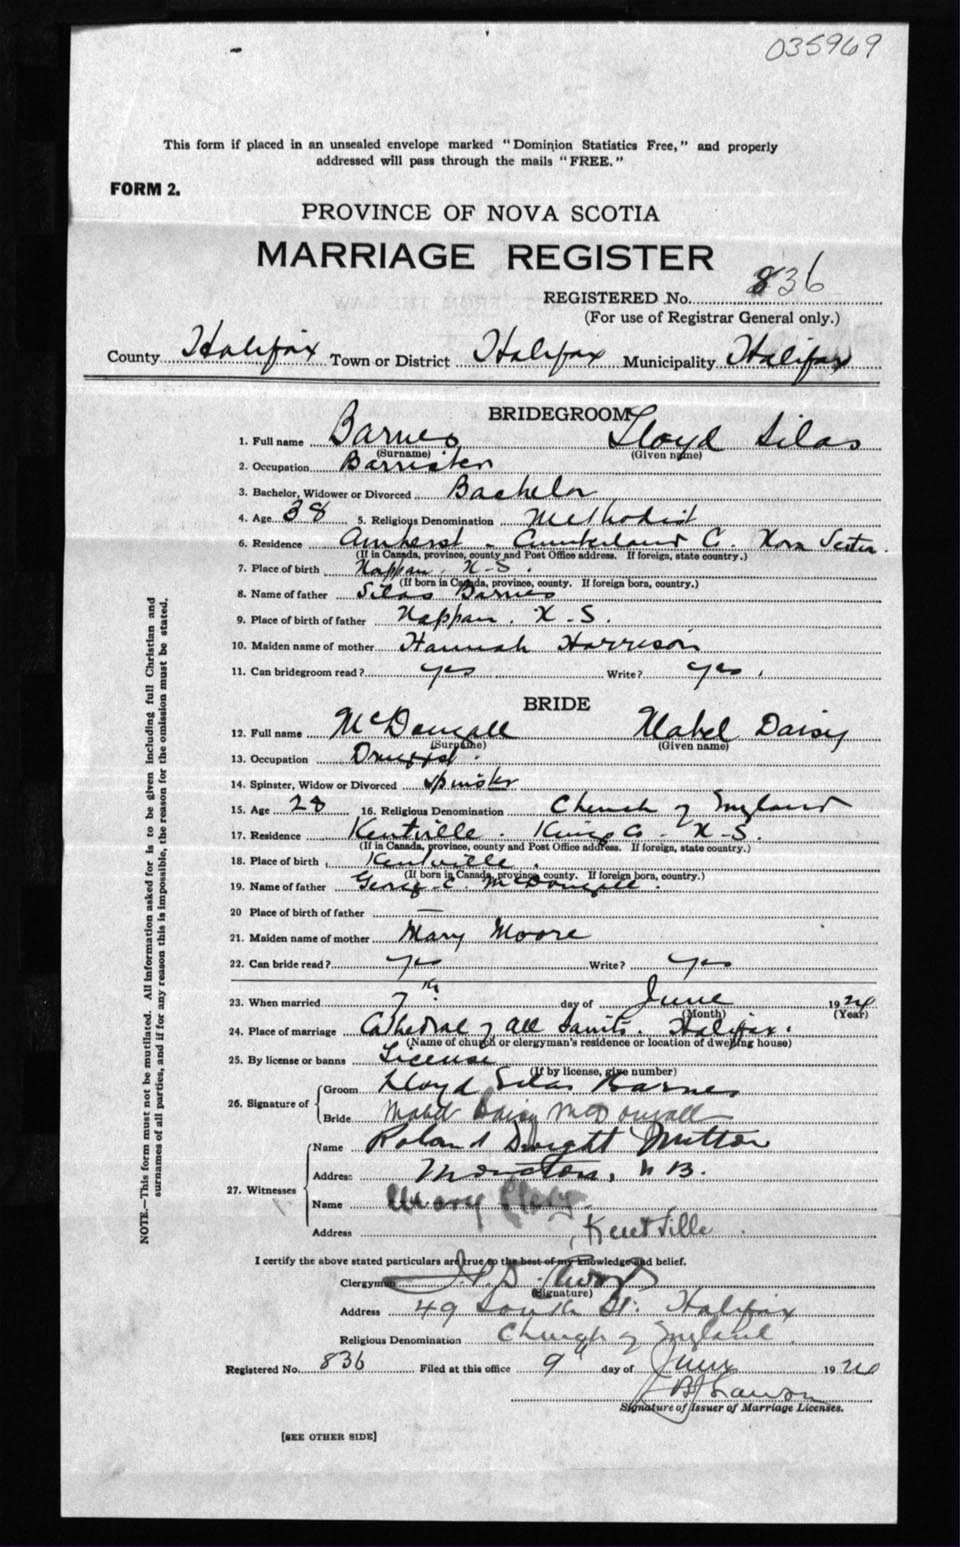 035969
This form if placed in an unsealed envelope marked "Dominion Statistics Free," and properly
addressed will pass through the mails "FREE."
FORM 2.
PROVINCE OF NOVA SCOTIA
MARRIAGE REGISTER
REGISTERED No. 836
(For use of Registrar General only.)
County Halifax Town or District Halifax Municipality Halifax
BRIDEGROOM
1. Full name Barnes Lloyd Silas
(Surname) (Given name)
2. Occupation Barrister
3. Bachelor, Widower or Divorced Bachelor
4. Age 38 5. Religious Denomination Methodist
6. Residence Amherst - Cumberland Co. Nova Scotia.
(If in Canada, province, county and Post Office address. If foreign, state country.)
7. Place of birth Nappan. N-S.
(If born in Canada, province, county. If foreign born, country.)
8. Name of father Silas Barnes
9. Place of birth of father Nappan. N.S.
10. Maiden name of mother Hannah Harrison
11. Can bridegroom read? yes Write? yes.
BRIDE
12. Full name McDougall Mabel Daisy
(Surname) (Given name)
13. Occupation Druggist.
14. Spinster, Widow or Divorced Spinster
15. Age 28 16. Religious Denomination Church of England
17. Residence Kentville. Kings Co. N-S.
(If in Canada, province, county and Post Office address. If foreign, state country.)
18. Place of birth Kentville.
(If born in Canada, province, county. If foreign born, country.)
19. Name of father George C. McDougall.
20 Place of birth of father —
21. Maiden name of mother Mary Moore
22. Can bride read? yes Write? yes
23. When married 7th day of June 1924
(Month) (Year)
24. Place of marriage Cathedral of All Saints. Halifax.
(Name of church or clergyman's residence or location of dwelling house)
25. By license or banns License
(If by license, give number)
26. Signature of Groom Lloyd Silas Barnes
Bride Mabel Daisy McDougall
27. Witnesses
Name Roland Dwight Mitton
Address Moncton, N B.
Name Mary
Address Kentville.
I certify the above stated particulars are true to the best of my knowledge and belief.
Clergyman
(Signature)
Address 49 South St. Halifax
Religious Denomination Church of England.
Registered No. 836 Filed at this office 9 day of June 1924
Signature of Issuer of Marriage Licenses.
[SEE OTHER SIDE]
NOTE.—This form must not be mutilated. All information asked for is to be given including full Christian and
surnames of all parties, and if for any reason this is impossible, the reason for the omission must be stated.